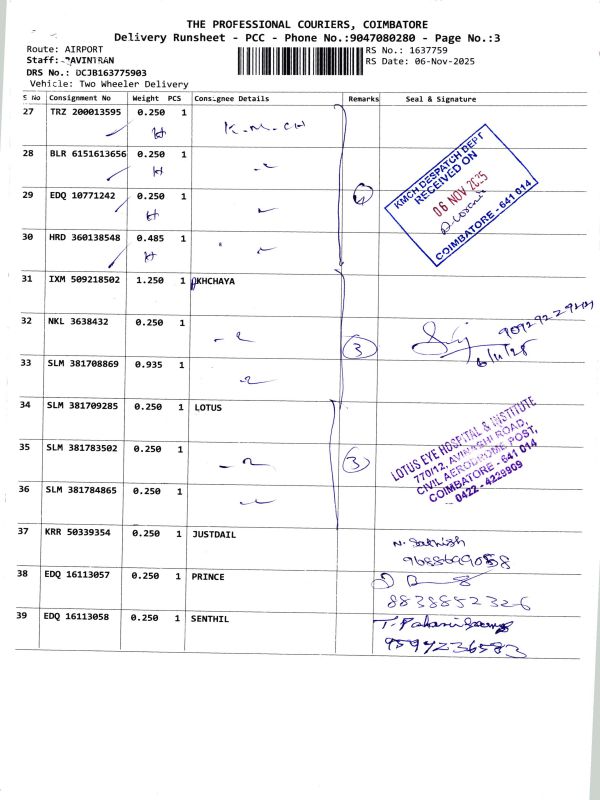 THE PROFESSIONAL COURIERS, COIMBATORE
Delivery Runsheet - PCC - Phone No.:9047080280 - Page No.:3
Route: AIRPORT
RS No.: 1637759
Staff: PAVINTRAN
RS Date: 06-Nov-2025
DRS No.: DCJB163775903
Vehicle: Two Wheeler Delivery
S No Consignment No Weight PCS Consignee Details Remarks Seal & Signature
27 TRZ 200013595 0.250 1 K.M.CH
28 BLR 6151613656 0.250 1
29 EDQ 10771242 0.250 1
30 HRD 360138548 0.485 1
4
KMCH DESPATCH DEPT
RECEIVED ON
06 NOV 2025
COIMBATORE - 641 014
31 IXM 509218502 1.250 1 AKHCHAYA
32 NKL 3638432 0.250 1
33 SLM 381708869 0.935 1
3
6/11/25
34 SLM 381709285 0.250 1 LOTUS
35 SLM 381783502 0.250 1
36 SLM 381784865 0.250 1
3
LOTUS EYE HOSPITAL & INSTITUTE
770/12, AVINASHI ROAD,
CIVIL AERODROME POST,
COIMBATORE - 641 014
0422 - 4229909
37 KRR 50339354 0.250 1 JUSTDAIL N. Sathish
38 EDQ 16113057 0.250 1 PRINCE
8838852326
39 EDQ 16113058 0.250 1 SENTHIL
9594236583